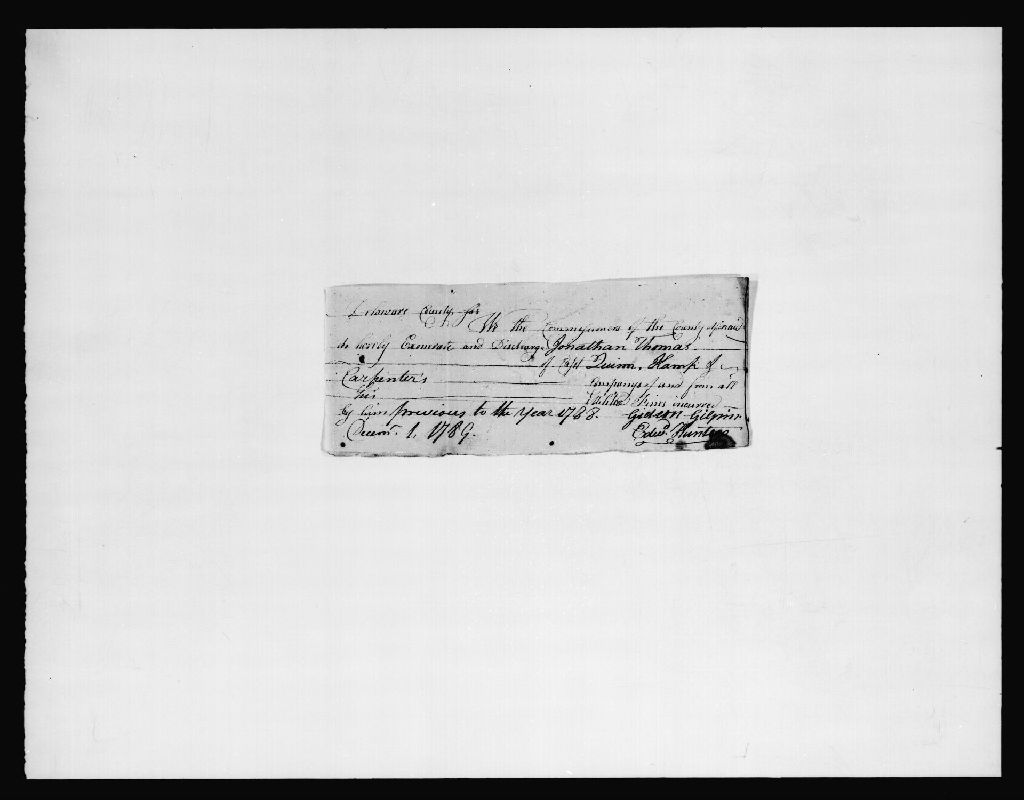 Delaware County ss
We the Commissioners of the County aforesaid
do hereby Exonerate and Discharge Jonathan Thomas
of Capt Quinn. Hamp &
Carpenters Companys of and from all
his Militia Fines incurred
by him previous to the year 1788. Gideon Gilpin
Decemr. 1. 1789. Edwd. Hunter